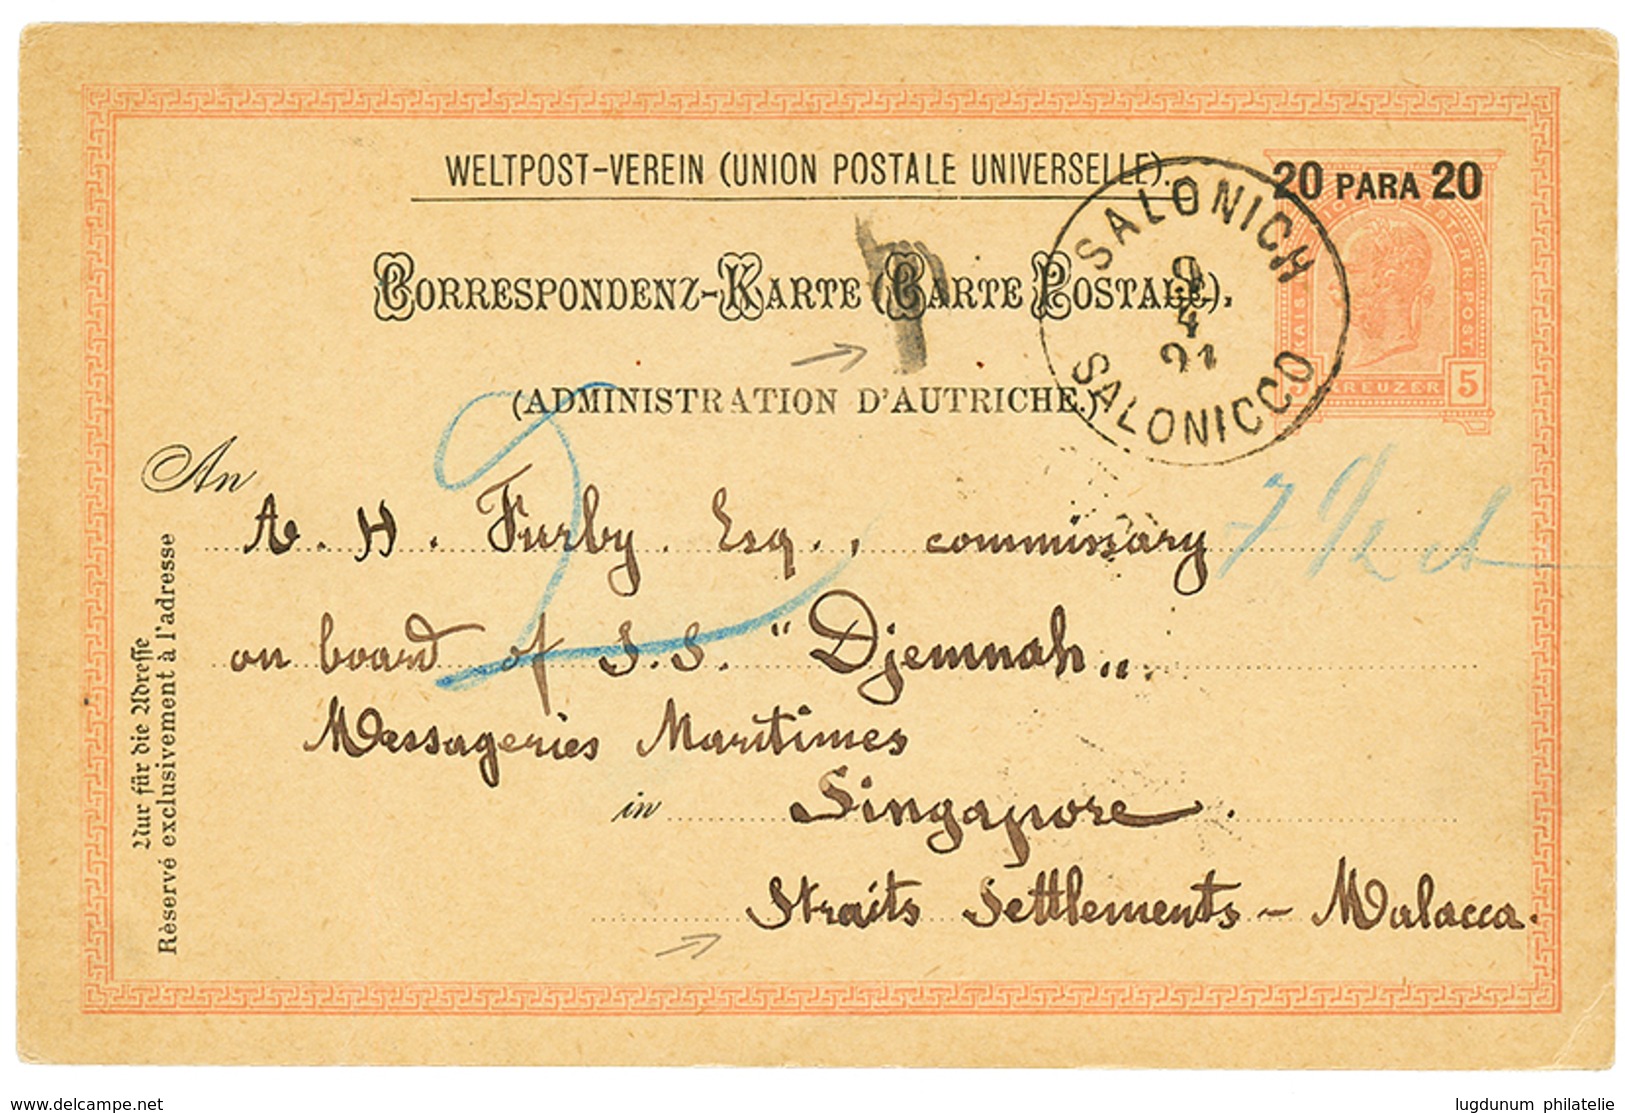 WELTPOST-VEREIN (UNION POSTALE UNIVERSELLE).
20 PARA 20
CORRESPONDENZ-KARTE (CARTE POSTALE).
(ADMINISTRATION D'AUTRICHE.)
SALONICH
9
4
91
SALONICCO
KAIS.
STERR. POST.
5 KREUZER 5
An
A. H. Furby. Esq., commissary
7 1/2 ct
2
on board of S.S. "Djemnah„.
Messageries Maritimes
in Singapore.
Straits Settlements – Malacca.
Nur für die Adresse
Rèservé exclusivement à l'adresse
delcampe.net
lugdunum philatelie